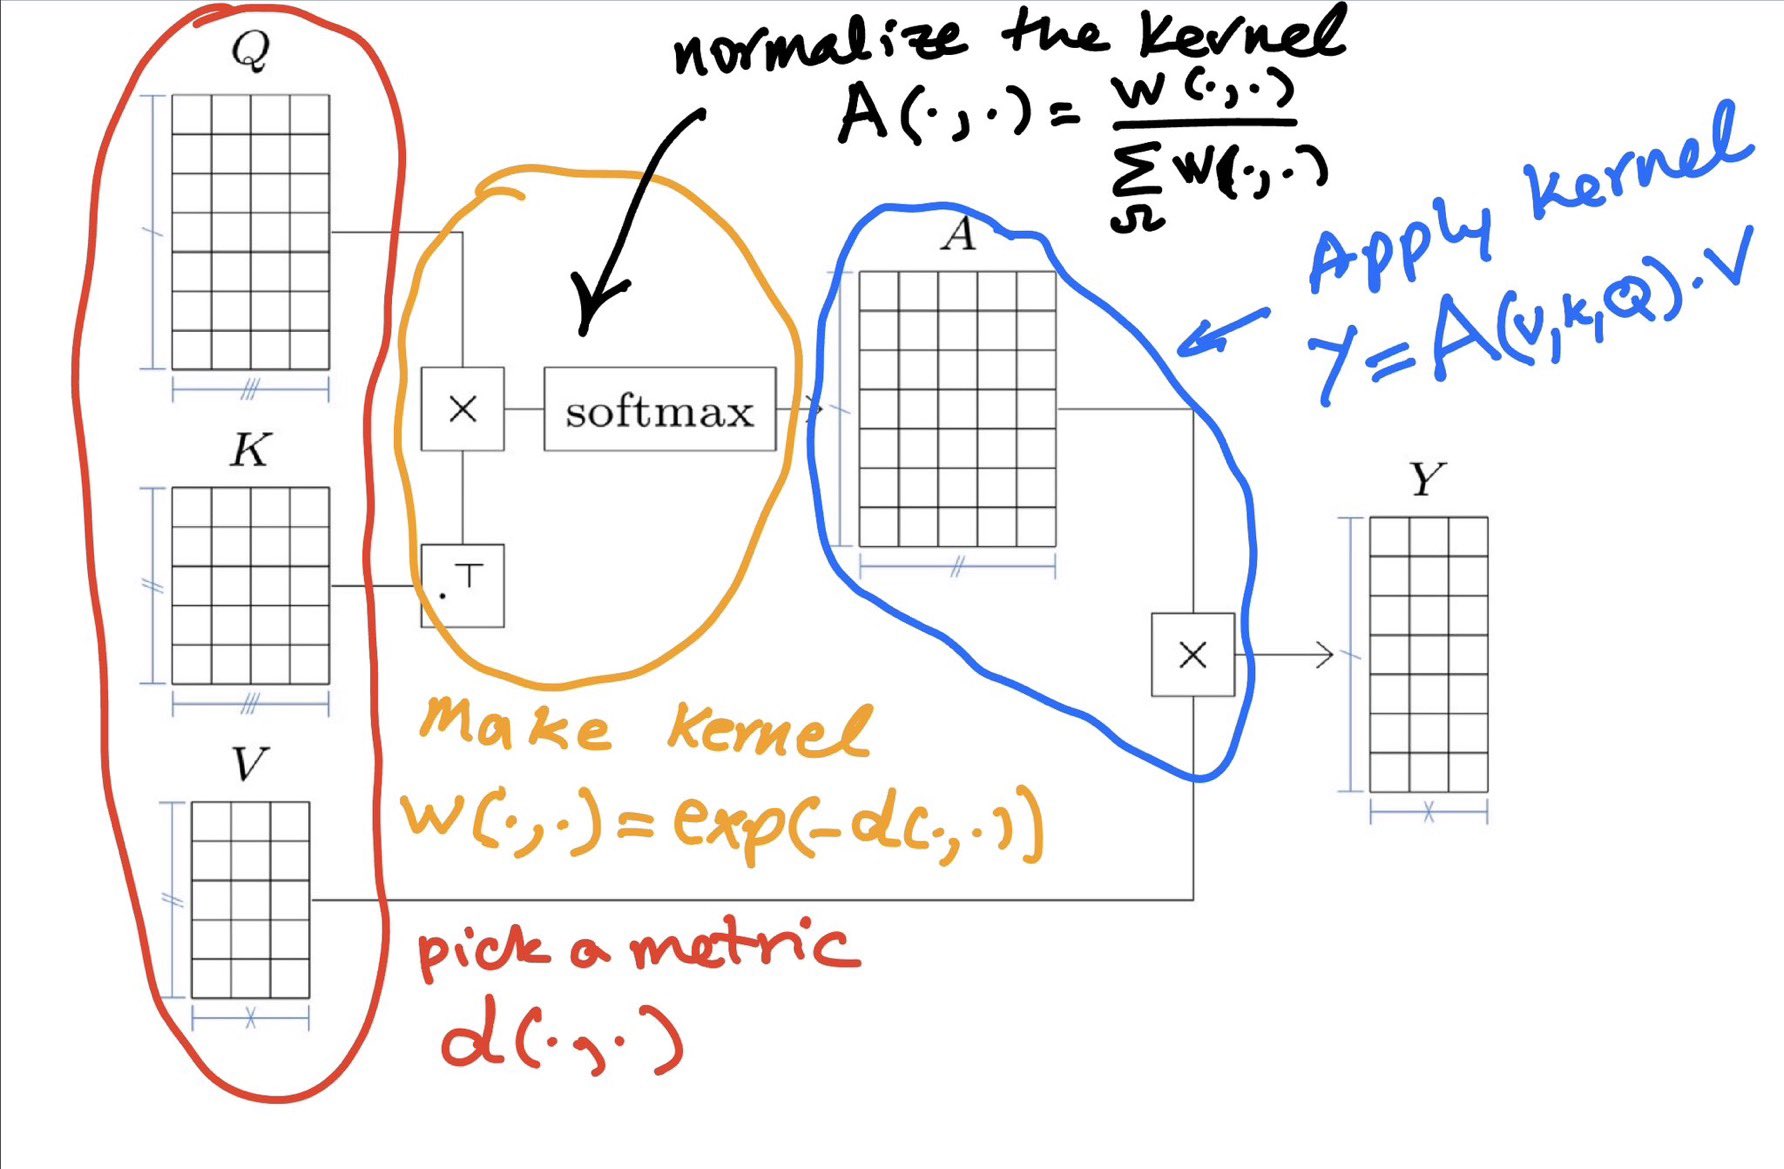 Q
normalize the kernel
A(·,·) = W(·,·)
Σ W(·,·)
Ω
Apply kernel
Y = A(V,K,Q)·V
A
K
×
softmax
Y
. ⊤
×
V
Make kernel
W(·,·) = exp(-d(·,·))
pick a metric
d(·,·)